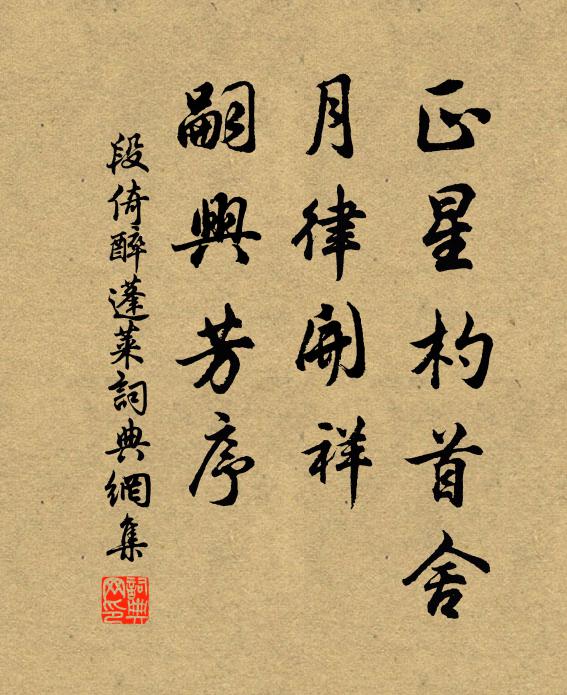 正星杓首舍
月律開祥
嗣興芳序
段倚醉蓬萊詞典網集
詞典网印